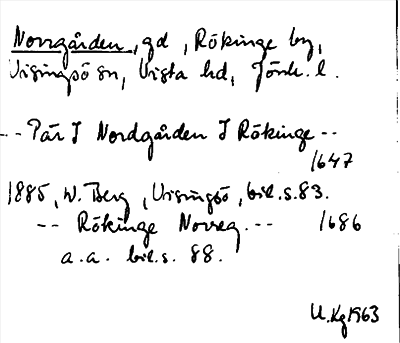 Norrgården, gd, Rökinge by,
Visingsö sn, Vista hd, Jönk. l.
-- Pär I Nordgården I Rökinge --
1647
1885, W. Berg, Visingsö, bil. s. 83.
-- Rökinge Norreg. -- 1686
a. a. bil. s. 88.
U. Kg 1963